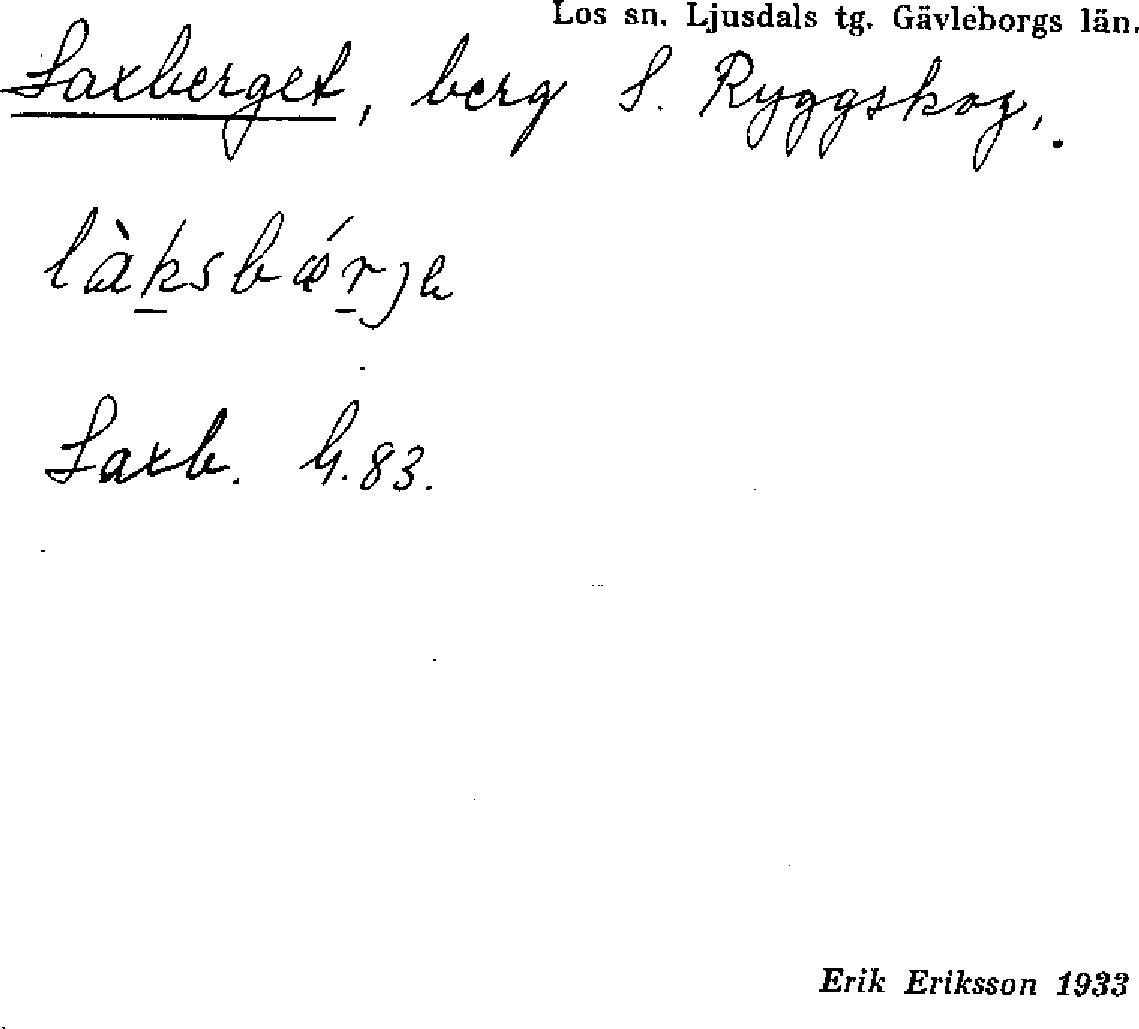 Los sn. Ljusdals tg. Gävleborgs län.
Laxberget, berg S. Ryggskog,.
làksbǽrje
Laxb. G.83.
Erik Eriksson 1933